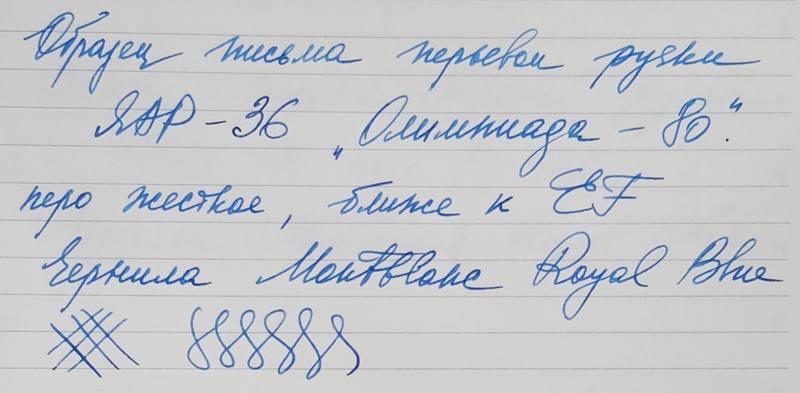 Образец письма перьевой ручки
ЯАР-36 „Олимпиада - 80".
перо жесткое, ближе к EF
Чернила Montblanc Royal Blue